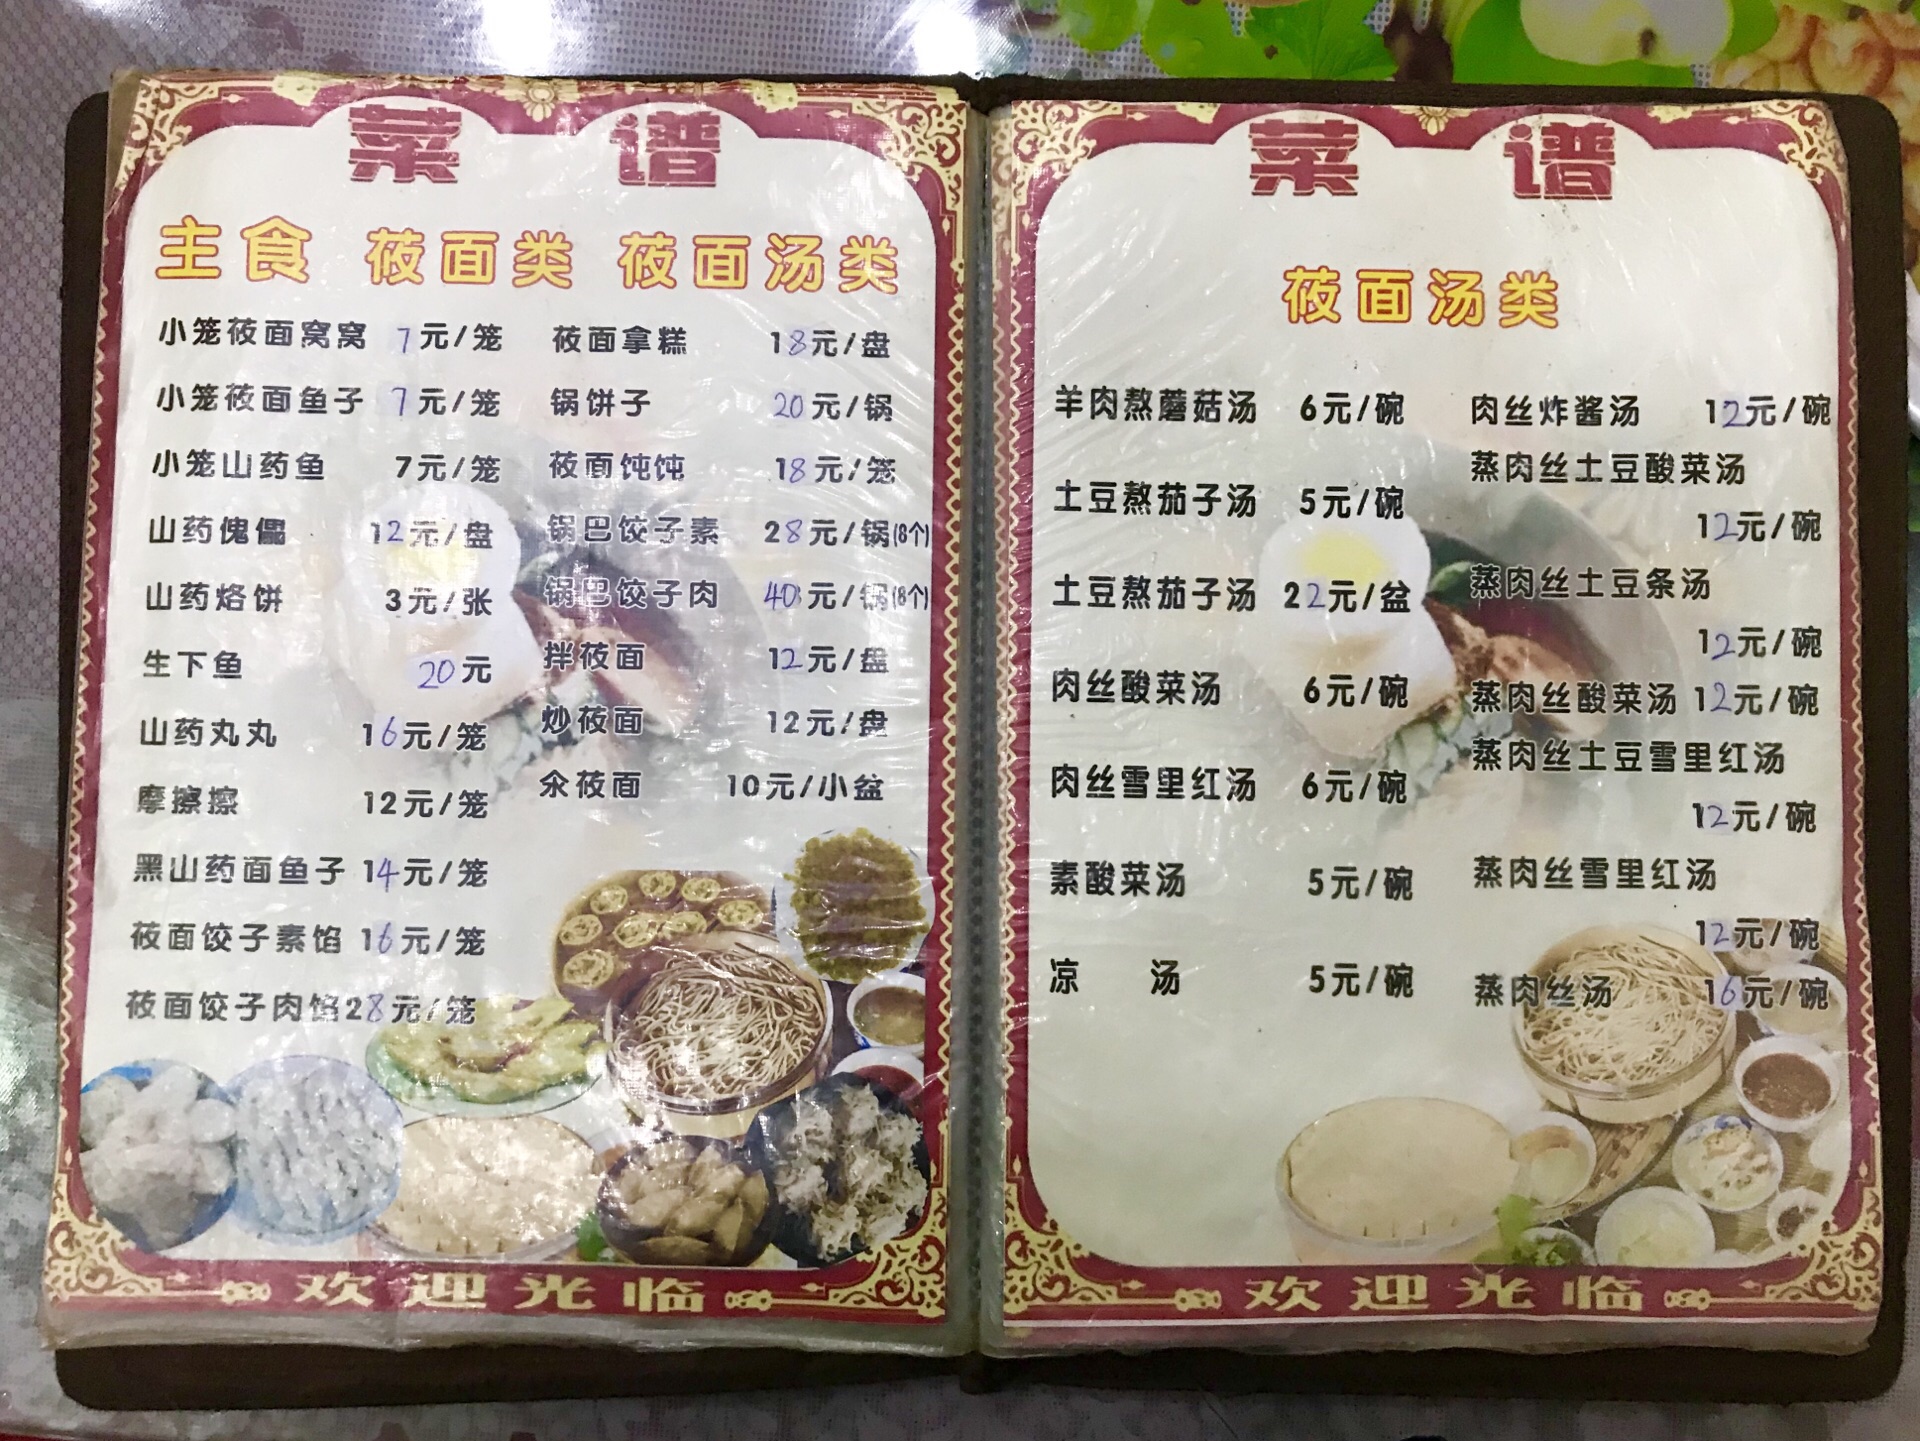 菜 谱
主食 莜面类 莜面汤类
小笼莜面窝窝 7元/笼
小笼莜面鱼子 7元/笼
小笼山药鱼 7元/笼
山药傀儡 12元/盘
山药烙饼 3元/张
生下鱼 20元
山药丸丸 16元/笼
摩擦擦 12元/笼
黑山药面鱼子 14元/笼
莜面饺子素馅 16元/笼
莜面饺子肉馅 28元/笼
莜面拿糕 18元/盘
锅饼子 20元/锅
莜面饨饨 18元/笼
锅巴饺子素 28元/锅(8个)
锅巴饺子肉 40元/锅(8个)
拌莜面 12元/盘
炒莜面 12元/盘
氽莜面 10元/小盆
欢迎光临
菜 谱
莜面汤类
羊肉熬蘑菇汤 6元/碗
土豆熬茄子汤 5元/碗
土豆熬茄子汤 22元/盆
肉丝酸菜汤 6元/碗
肉丝雪里红汤 6元/碗
素酸菜汤 5元/碗
凉 汤 5元/碗
肉丝炸酱汤 12元/碗
蒸肉丝土豆酸菜汤
12元/碗
蒸肉丝土豆条汤
12元/碗
蒸肉丝酸菜汤 12元/碗
蒸肉丝土豆雪里红汤
12元/碗
蒸肉丝雪里红汤
12元/碗
蒸肉丝汤 16元/碗
欢迎光临